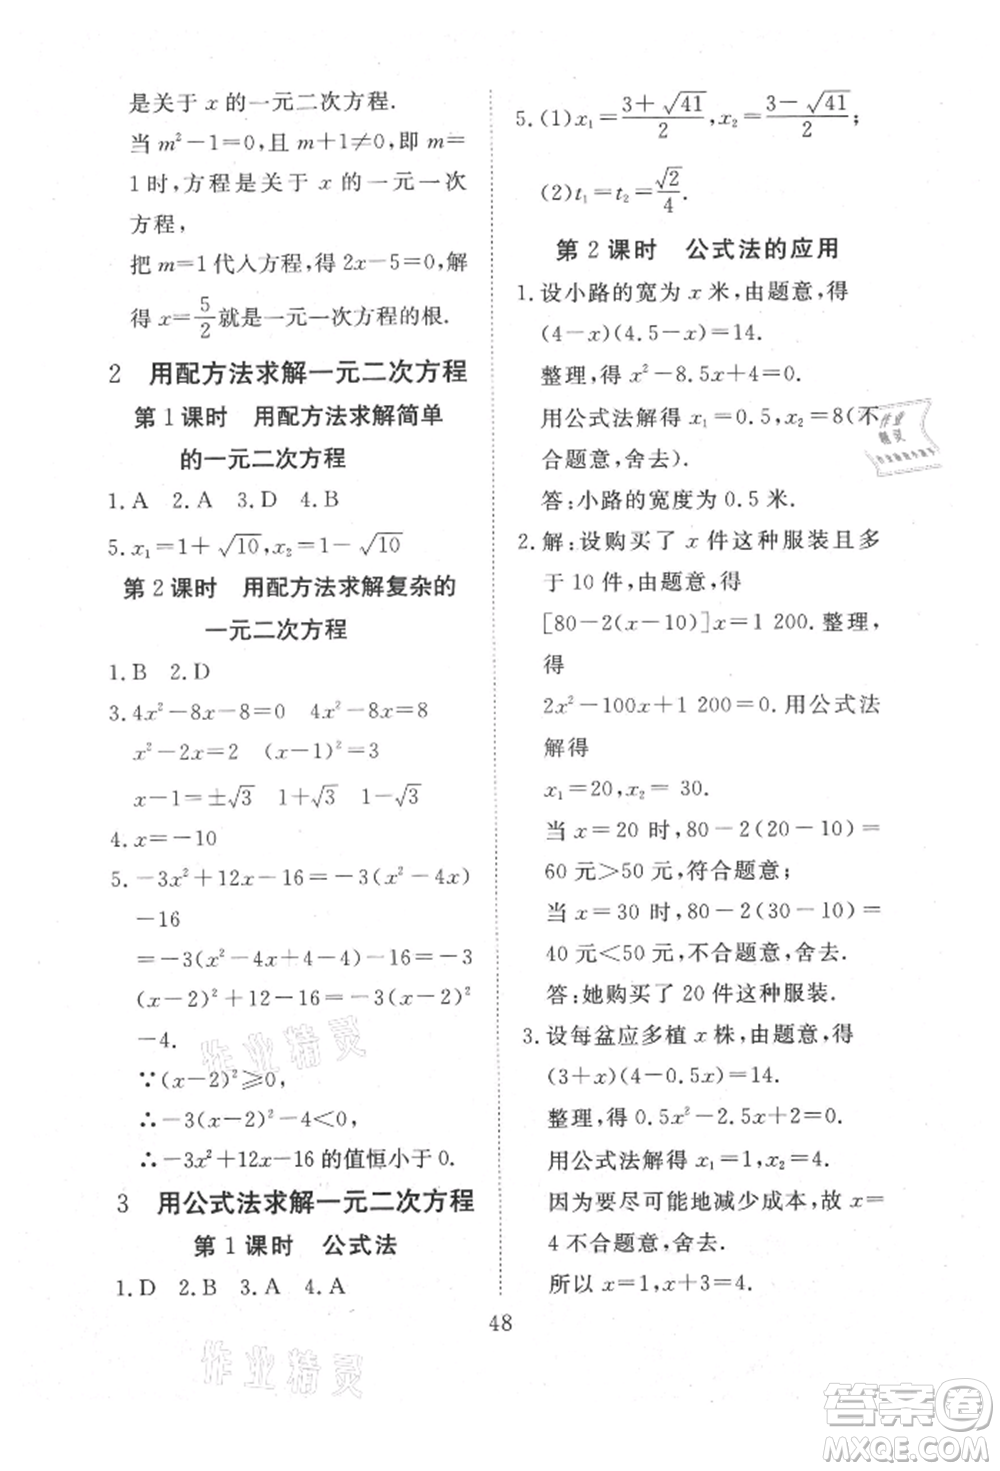 是关于 x 的一元二次方程.
当 m²－1＝0，且 m＋1≠0，即 m＝
1 时，方程是关于 x 的一元一次
方程，
把 m＝1 代入方程，得 2x－5＝0，解
得 x＝5/2 就是一元一次方程的根.
2 用配方法求解一元二次方程
第 1 课时 用配方法求解简单
的一元二次方程
1. A 2. A 3. D 4. B
5. x₁＝1＋√10，x₂＝1－√10
第 2 课时 用配方法求解复杂的
一元二次方程
1. B 2. D
3. 4x²－8x－8＝0 4x²－8x＝8
x²－2x＝2 (x－1)²＝3
x－1＝±√3 1＋√3 1－√3
4. x＝－10
5. －3x²＋12x－16＝－3(x²－4x)
－16
＝－3(x²－4x＋4－4)－16＝－3
(x－2)²＋12－16＝－3(x－2)²
－4.
∵(x－2)²≥0，
∴－3(x－2)²－4＜0，
∴－3x²＋12x－16 的值恒小于 0.
3 用公式法求解一元二次方程
第 1 课时 公式法
1. D 2. B 3. A 4. A
5. (1)x₁＝(3＋√41)/2，x₂＝(3－√41)/2；
(2)t₁＝t₂＝√2/4.
第 2 课时 公式法的应用
1. 设小路的宽为 x 米，由题意，得
(4－x)(4.5－x)＝14.
整理，得 x²－8.5x＋4＝0.
用公式法解得 x₁＝0.5，x₂＝8(不
合题意，舍去).
答：小路的宽度为 0.5 米.
2. 解：设购买了 x 件这种服装且多
于 10 件，由题意，得
[80－2(x－10)]x＝1 200. 整理，
得
2x²－100x＋1 200＝0. 用公式法
解得
x₁＝20，x₂＝30.
当 x＝20 时，80－2(20－10)＝
60 元＞50 元，符合题意；
当 x＝30 时，80－2(30－10)＝
40 元＜50 元，不合题意，舍去.
答：她购买了 20 件这种服装.
3. 设每盆应多植 x 株，由题意，得
(3＋x)(4－0.5x)＝14.
整理，得 0.5x²－2.5x＋2＝0.
用公式法解得 x₁＝1，x₂＝4.
因为要尽可能地减少成本，故 x＝
4 不合题意，舍去.
所以 x＝1，x＋3＝4.
48
作业精灵
作业精灵
作业
精灵
答案圈
MXQE.COM